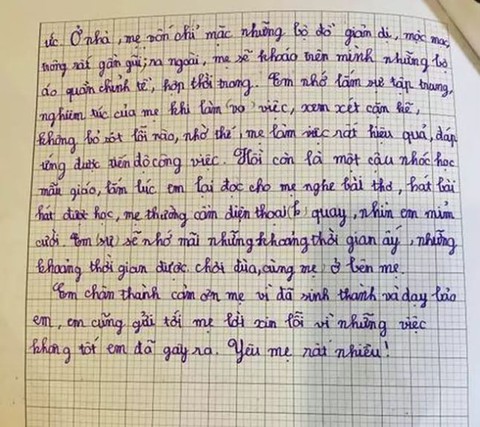 ức. Ở nhà, mẹ vốn chỉ mặc những bộ đồ giản dị, mộc mạc,
trông rất gần gũi; ra ngoài, mẹ sẽ khoác trên mình những bộ
áo quần chỉnh tề, hợp thời trang. Em nhớ lắm sự tập trung,
nghiêm túc của mẹ khi làm việc, xem xét cặn kẽ,
không bỏ sót lỗi nào, nhờ thế, mẹ làm việc rất hiệu quả, đáp
ứng được tiến độ công việc. Hồi còn là một cậu nhóc học
mẫu giáo, lắm lúc em lại đọc cho mẹ nghe bài thơ, hát bài
hát được học, mẹ thường cầm điện thoại quay, nhìn em mỉm
cười. Em sẽ nhớ mãi những khoảng thời gian ấy, những
khoảng thời gian được chơi đùa, cùng mẹ, ở bên mẹ.
Em chân thành cảm ơn mẹ vì đã sinh thành và dạy bảo
em, em cũng gửi tới mẹ lời xin lỗi vì những việc
không tốt em đã gây ra. Yêu mẹ rất nhiều!